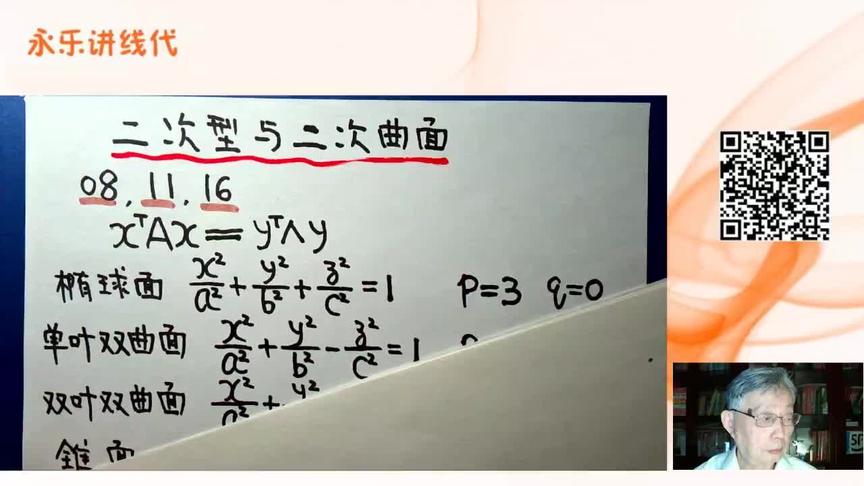 永乐讲线代
二次型与二次曲面
08, 11, 16
xᵀAx = yᵀΛy
椭球面 x²/a² + y²/b² + z²/c² = 1 p=3 q=0
单叶双曲面 x²/a² + y²/b² - z²/c² = 1
双叶双曲面 x²/a² + y²
锥面